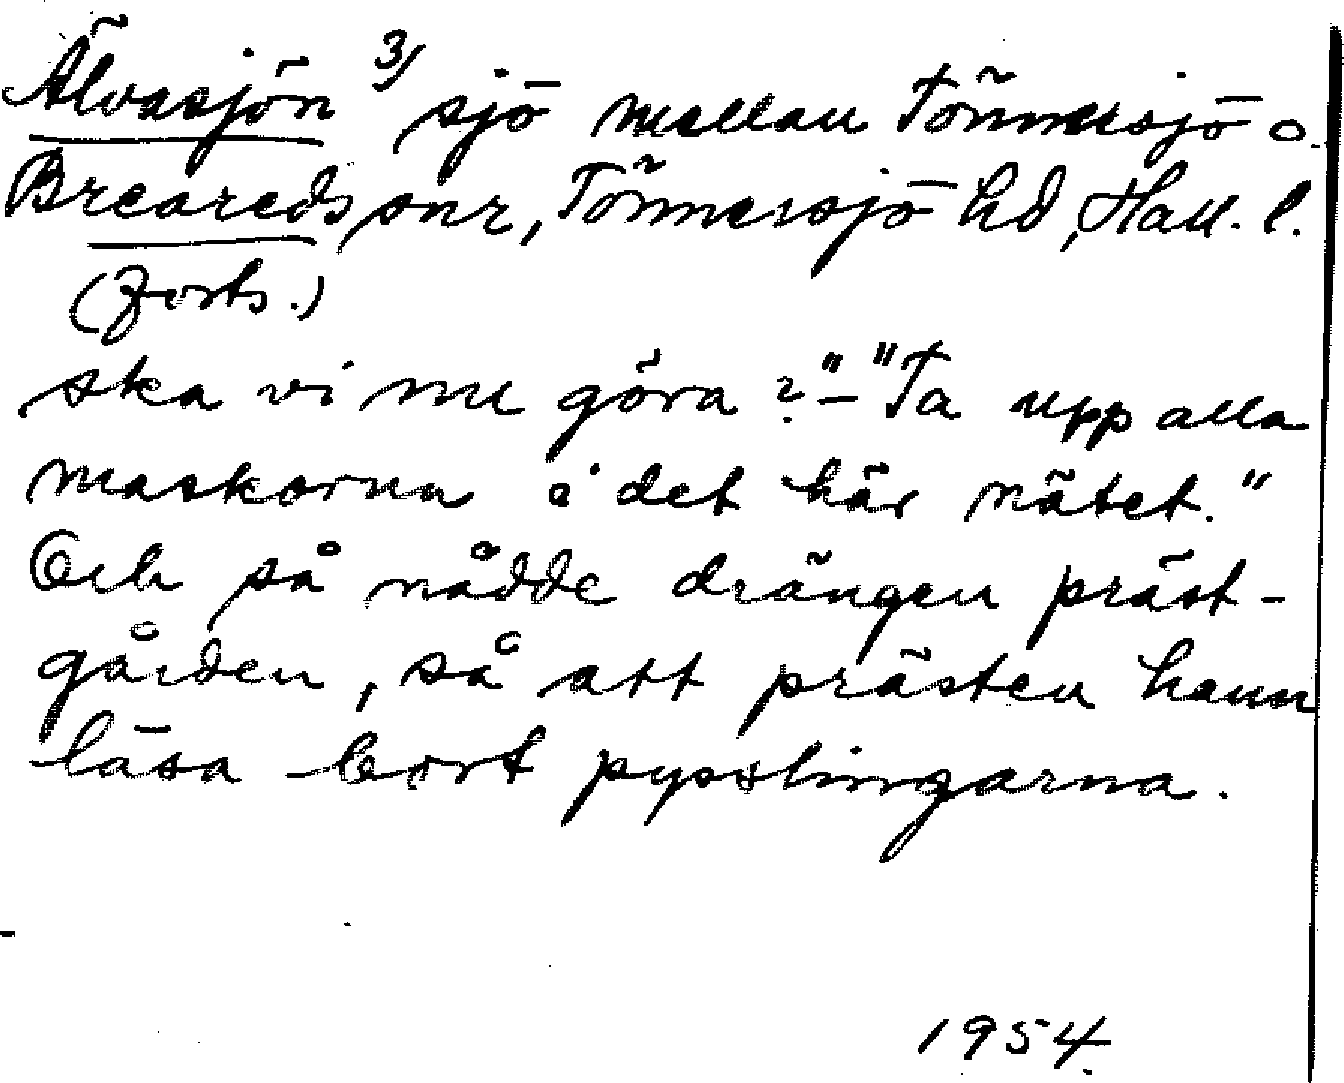 Älvasjön 3/ sjö mellan Tönnersjö o.
Breareds snr, Tönnersjö hd, Hall. l.
(Forts.)
ska vi nu göra?" - "Ta upp alla
maskorna i det här nätet."
Och så nådde drängen präst-
gården, så att prästen hann
läsa bort pysslingarna.
1954.